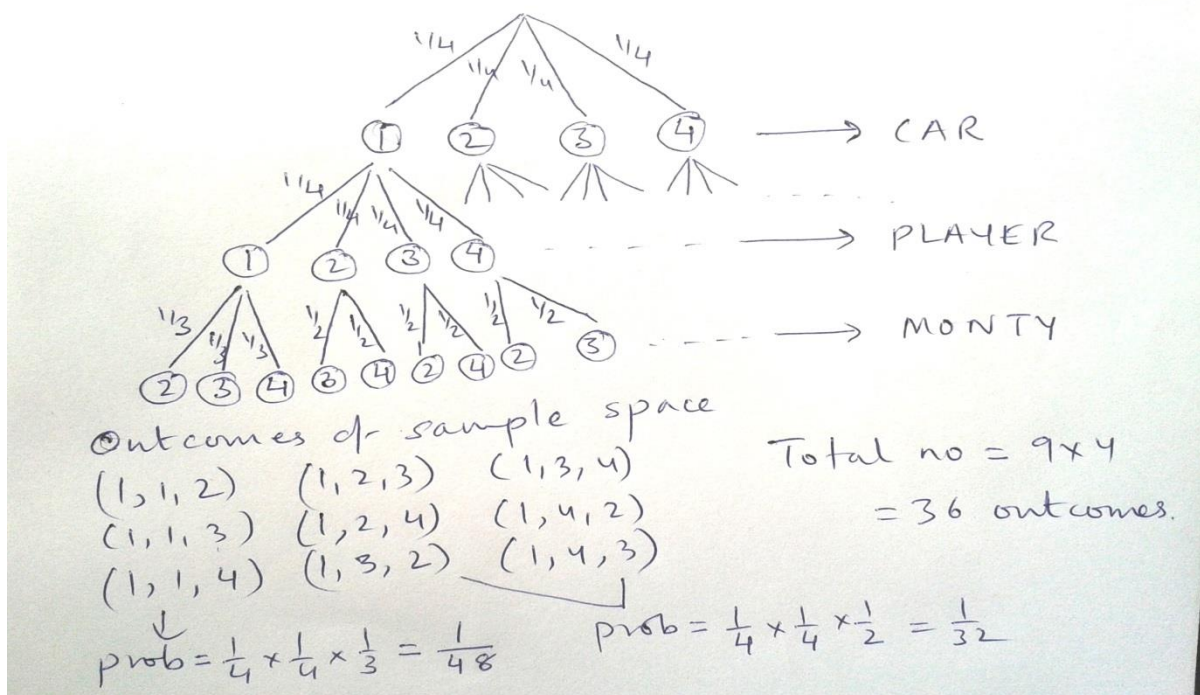 1/4 1/4 1/4 1/4
1 2 3 4 → CAR
1/4 1/4 1/4 1/4
1 2 3 4 → PLAYER
1/3 1/3 1/3 1/2 1/2 1/2 1/2 1/2 1/2
2 3 4 3 4 2 4 2 3 → MONTY
Outcomes of sample space
(1,1,2) (1,2,3) (1,3,4)
(1,1,3) (1,2,4) (1,4,2)
(1,1,4) (1,3,2) (1,4,3)
Total no = 9x4
= 36 outcomes.
prob = 1/4 x 1/4 x 1/3 = 1/48
prob = 1/4 x 1/4 x 1/2 = 1/32